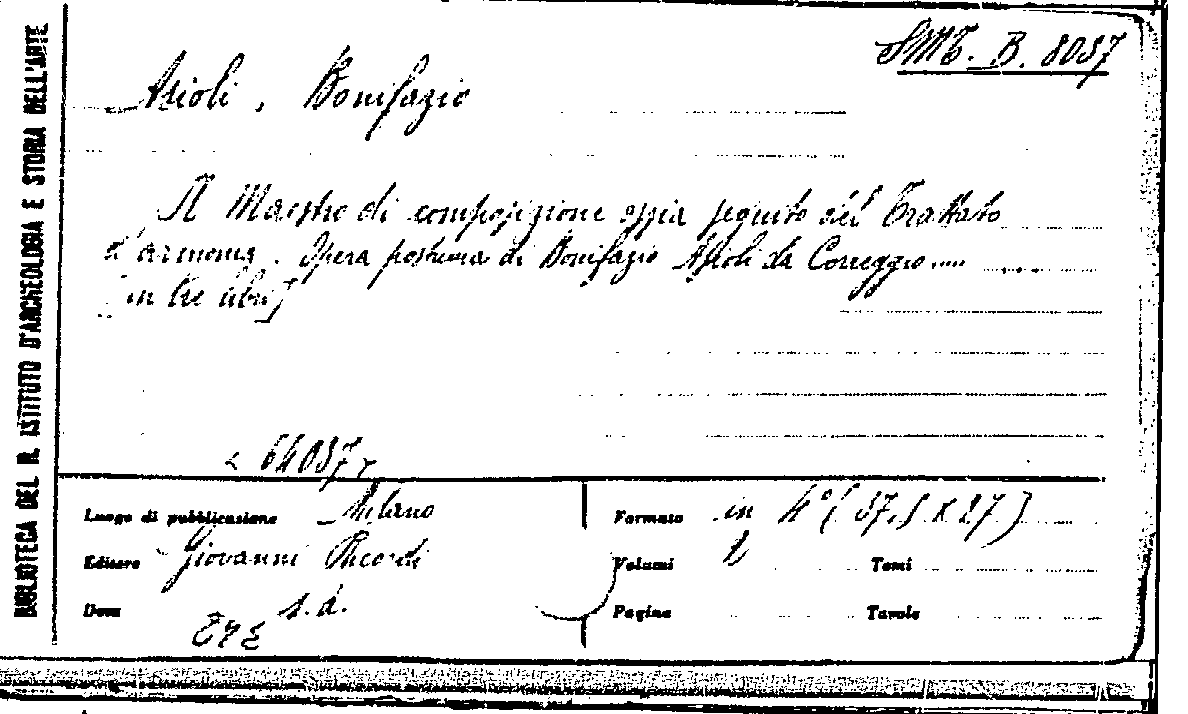 BIBLIOTECA DEL R. ISTITUTO D'ARCHEOLOGIA E STORIA DELL'ARTE
SMT. B. 8037
Asioli, Bonifazio
Il Maestro di composizione ossia seguito del Trattato
d'armonia. Opera postuma di Bonifazio Asioli da Correggio....
[in tre libri]
< 64037 >
Luogo di pubblicazione Milano
Editore Giovanni Ricordi
Data s.d.
Formato in 4° (37,5 x 27)
Volumi Tomi
Pagine Tavole